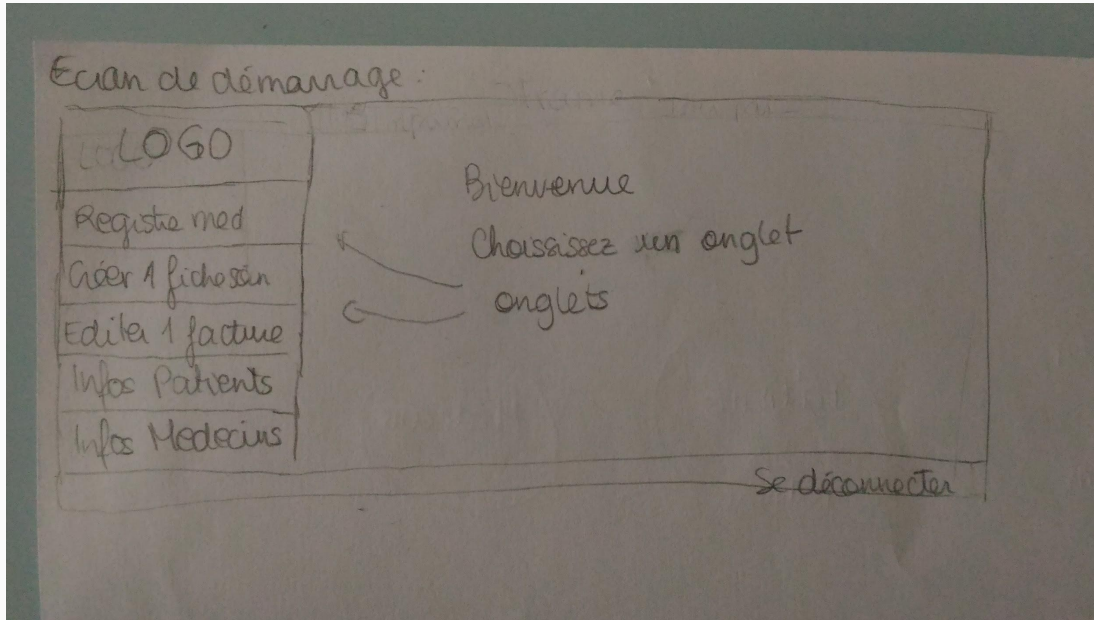 Ecran de démarrage :
LOGO
Registre med
Créer 1 fiche soin
Editer 1 facture
Infos Patients
Infos Medecins
Bienvenue
Choississez un onglet
onglets
Se déconnecter